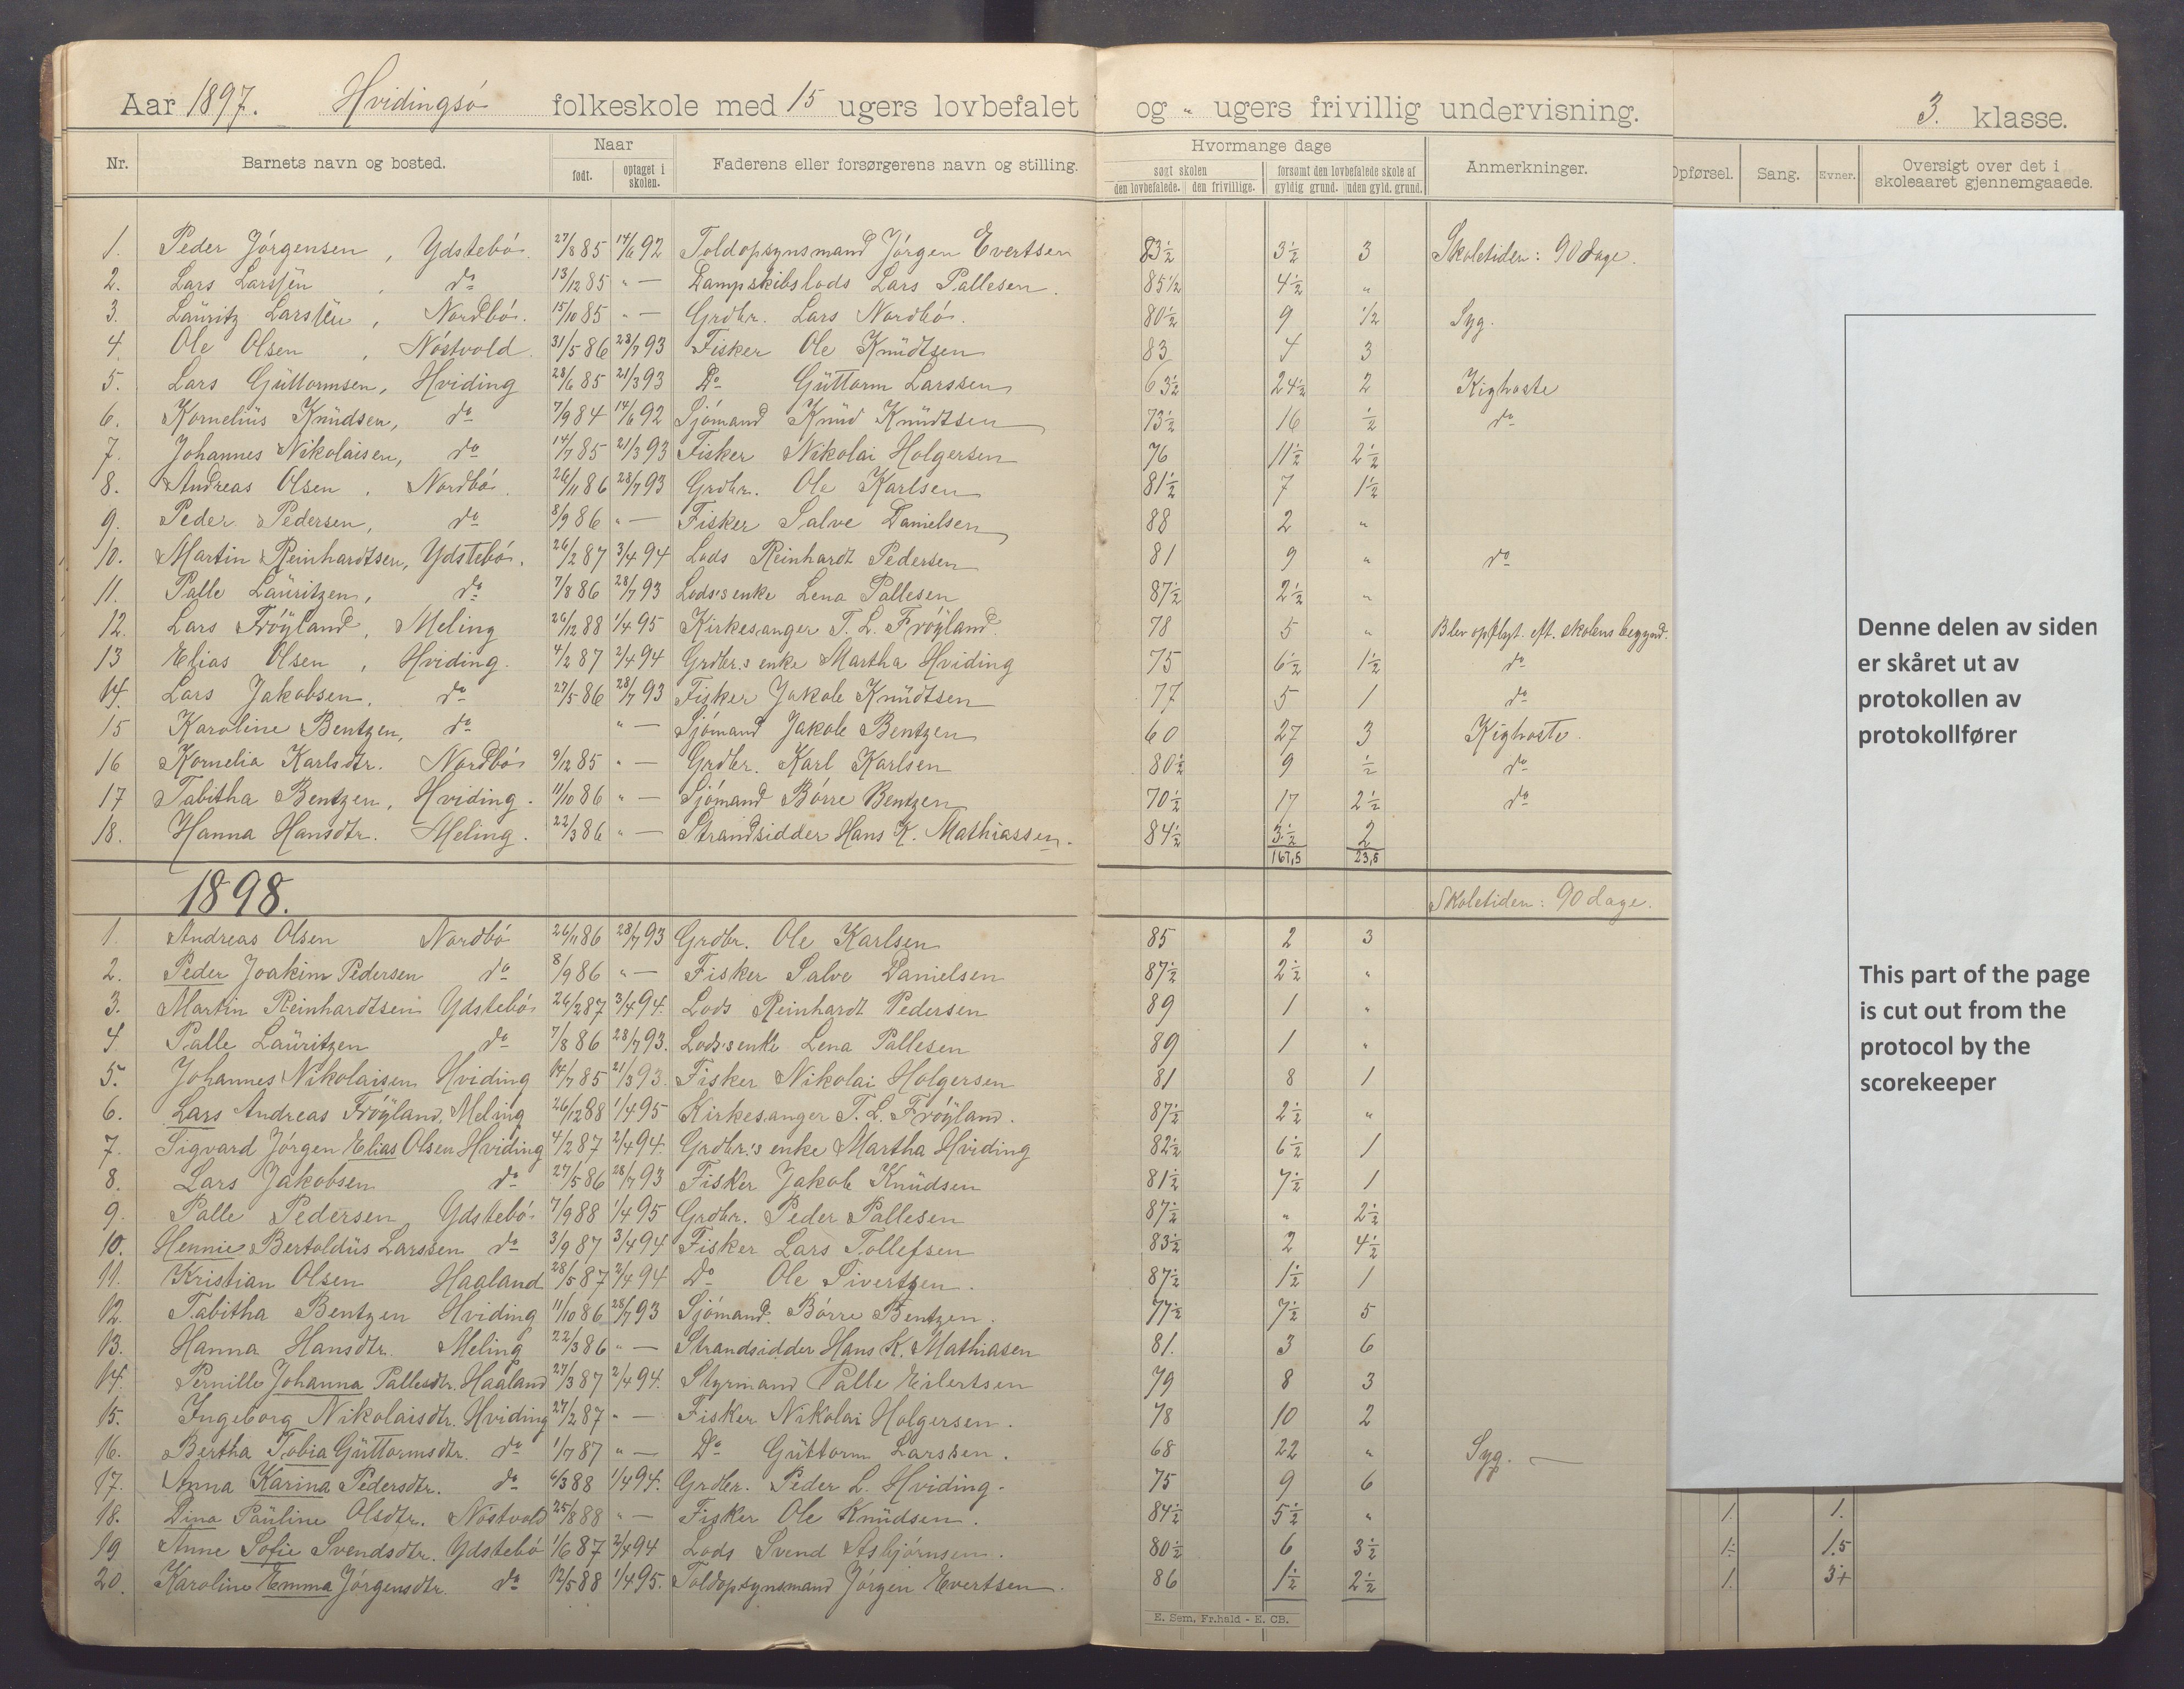 Aar 1897. Hvidingsö folkeskole med 15 ugers lovbefalet og " ugers frivillig undervisning. 3. klasse.
Nr. Barnets navn og bosted. Naar født. optaget i skolen. Faderens eller forsørgerens navn og stilling. Hvormange dage søgt skolen den lovbefalede. den frivillige. forsømt den lovbefalede skole af gyldig grund. uden gyld. grund. Anmerkninger. Opførsel. Sang. Evner. Oversigt over det i skoleaaret gjennemgaaede.
1. Peder Jörgensen, Ydstebö. 27/8 85 14/6 92 Toldopsynsmand Jörgen Evertsen 83½ 3½ 3 Skoletiden: 90 dage.
2. Lars Larssen, do 13/12 85 " — Dampskibslods Lars Pallesen. 85½ 4½ "
3. Laüritz Larssen, Nordbö. 15/10 85 " — Grdbr. Lars Nordbö. 80½ 9 ½ Syg.
4. Ole Olsen, Nöstvold. 31/5 86 28/7 93 Fisker Ole Knüdtsen 83 4 3
5. Lars Güttormsen, Hviding 28/6 85 21/3 93 Do Güttorm Larssen 63½ 24½ 2 Kighoste
6. Kornelius Knüdsen, do 7/9 84 14/6 92 Sjömand Knüd Knüdtsen 73½ 16 ½ do
7. Johannes Nikolaisen, do 14/7 85 21/3 93 Fisker Nikolai Holgersen 76 11½ 2½
8. Andreas Olsen, Nordbö. 26/11 86 28/7 93 Grdbr. Ole Karlsen 81½ 7 1½
9. Peder Pedersen, do 8/9 86 " — Fisker Salve Danielsen 88 2 "
10. Martin Reinhardtsen, Ydstebö. 26/2 87 3/4 94 Lods Reinhardt Pedersen 81 9 " do
11. Palle Laüritzen, do 7/8 86 28/7 93 Lods's enke Lena Pallesen 87½ 2½ "
12. Lars Fröyland, Meling 26/12 88 1/4 95 Kirkesanger T. L. Fröyland. 78 5 " Blev opflyt. eft. skolens begynd.
13 Elias Olsen, Hviding. 4/2 87 2/4 94 Grdbr.s enke Martha Hviding 75 6½ 1½ do
14. Lars Jakobsen, do 27/5 86 28/7 93 Fisker Jakob Knüdtsen 77 5 1 do
15 Karoline Bentzen, do " — Sjömand Jakob Bentzen 60 27 3 Kighoste.
16 Kornelia Karlsdtr. Nordbö 9/12 85 " — Grdbr. Karl Karlsen 80½ 9 ½ do
17 Tabitha Bentzen, Hviding. 11/10 86 " — Sjömand Börre Bentzen 70½ 17 2½ do
18. Hanna Hansdtr. Meling. 22/3 86 " — Strandsidder Hans K. Mathiassen. 84½ 3½ 2
167,5 23,5
1898. Skoletiden: 90 dage.
1. Andreas Olsen Nordbö 26/11 86 28/7 93 Grdbr. Ole Karlsen 85 2 3
2. Peder Joakim Pedersen do 8/9 86 " — Fisker Salve Danielsen 87½ 2½ "
3. Martin Reinhardtsen Ydstebö 26/2 87 3/4 94. Lods Reinhardt Pedersen 89 1 "
4 Palle Laüritzen do 7/8 86 28/7 93. Lods's enke Lena Pallesen 89 1 "
5. Johannes Nikolaisen Hviding 14/7 85 21/3 93. Fisker Nikolai Holgersen 81 8 1
6. Lars Andreas Fröyland, Meling 26/12 88 1/4 95 Kirkesanger T. L. Fröyland. 87½ 2½ "
7. Sigvard Jörgen Elias Olsen Hviding 4/2 87 2/4 94. Grdbr.'s enke Martha Hviding 82½ 6½ 1
8. Lars Jakobsen do 27/5 86 28/7 93 Fisker Jakob Knüdsen 81½ 7½ 1
9. Palle Pedersen Ydstebö 7/9 88 1/4 95 Grdbr. Peder Pallesen 87½ " 2½
10. Hennie Bertoldüs Larssen do 3/9 87 3/4 94 Fisker Lars Tollefsen 83½ 2 4½
11. Kristian Olsen Haaland 28/5 87 2/4 94 Do Ole Sivertzen. 87½ 1½ 1
12. Tabitha Bentzen Hviding 11/10 86 28/7 93 Sjömand. Börre Bentzen. 77½ 7½ 5
13. Hanna Hansdtr. Meling 22/3 86 " — Strandsidder Hans K. Mathiasen 81. 3 6
14. Pernille Johanna Pallesdtr. Haaland 27/3 87 2/4 94. Styrmand Palle Eilertsen 79 8 3
15. Ingeborg Nikolaisdtr. Hviding 27/2 87 " — Fisker Nikolai Holgersen. 78 10 2
16. Bertha Tobia Güttormsdtr. do 1/7 87 " — Do Güttorm Larssen. 68 22 " Syg. —
17. Anna Karina Pedersdtr. do 6/3 88 1/4 94. Grdbr. Peder L. Hviding. 75 9 6
18. Dina Paüline Olsdtr. Nöstvold 25/8 88 " — Fisker Ole Knüdsen. 84½ 5½ " 1. 1.
19 Anne Sofie Svendsdtr. Ydstebö 1/6 87 2/4 94 Lods Svend Asbjörnsen. 80½ 6 3½ 1: 1.5
20. Karoline Emma Jörgensdtr. do 12/5 88 1/4 95. Toldopsynsmand Jörgen Evertsen. 86 1½ 2½ 1. 3+
E. Sem, Fr.hald - E. CB.
Denne delen av siden
er skåret ut av
protokollen av
protokollfører
This part of the page
is cut out from the
protocol by the
scorekeeper